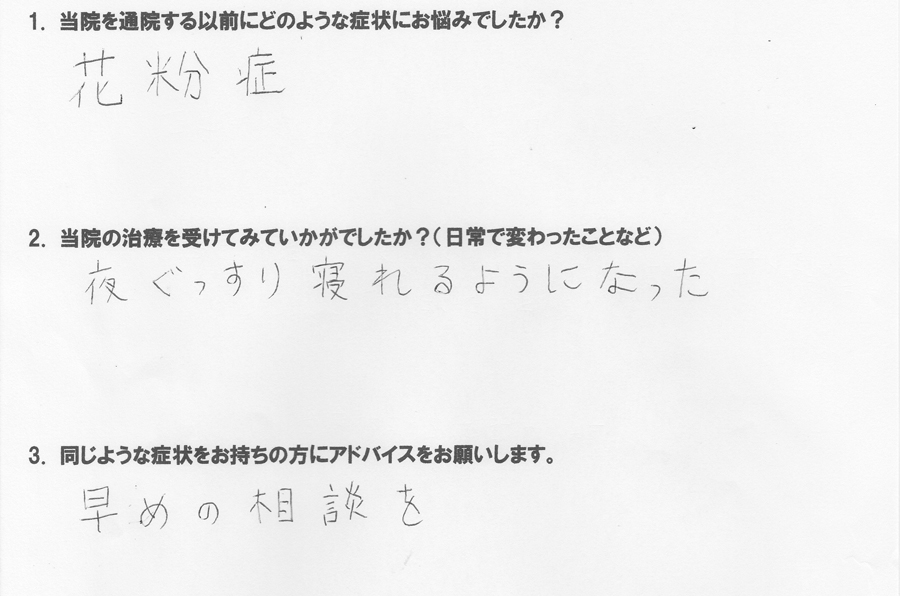 1. 当院を通院する以前にどのような症状にお悩みでしたか？
花粉症
2. 当院の治療を受けてみていかがでしたか？（日常で変わったことなど）
夜ぐっすり寝れるようになった
3. 同じような症状をお持ちの方にアドバイスをお願いします。
早めの相談を